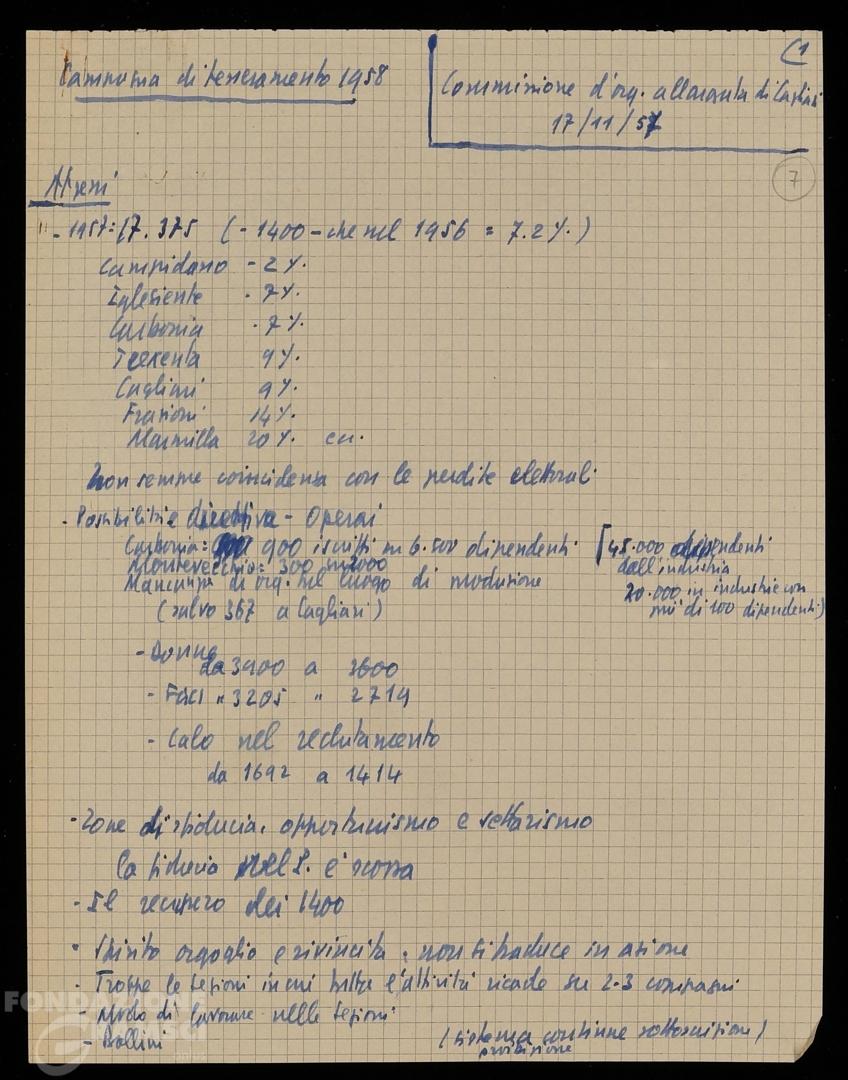 (1
Campagna di tesseramento 1958
Commissione d'org. allargata di Cagliari
17/11/57
7
Atzeni
- 1957: 17.375 (- 1400 - che nel 1956 = 7.2%.)
Campidano - 2%.
Iglesiente - 7%.
Carbonia - 7%.
Trexenta 9%.
Cagliari 9%.
Frazioni 14%.
Marmilla 20%. ecc.
Non sempre coincidenza con le perdite elettorali
- Possibilità direttiva - Operai
Carbonia: 900 iscritti su 6.500 dipendenti
Montevecchio: 300 su 2000
Mancanza di org. nel luogo di produzione
(salvo 367 a Cagliari)
[45.000 dipendenti
dall'industria
20.000 in industrie con
più di 100 dipendenti)
- Donne
da 3900 a 3600
- Fgci " 3205 " 2714
- Calo nel reclutamento
da 1692 a 1414
- Zone di sfiducia, opportunismo e settarismo
La fiducia nel P. è scossa
- Il recupero dei 1400
- Spirito orgoglio e rivincita, non si traduce in azione
- Troppe le sezioni in cui tutta l'attività ricade su 2-3 compagni
- Modo di lavorare nelle sezioni
- Bollini
(sistema continue sottoscrizioni)
FONDAZIONE
Gramsci
onlus